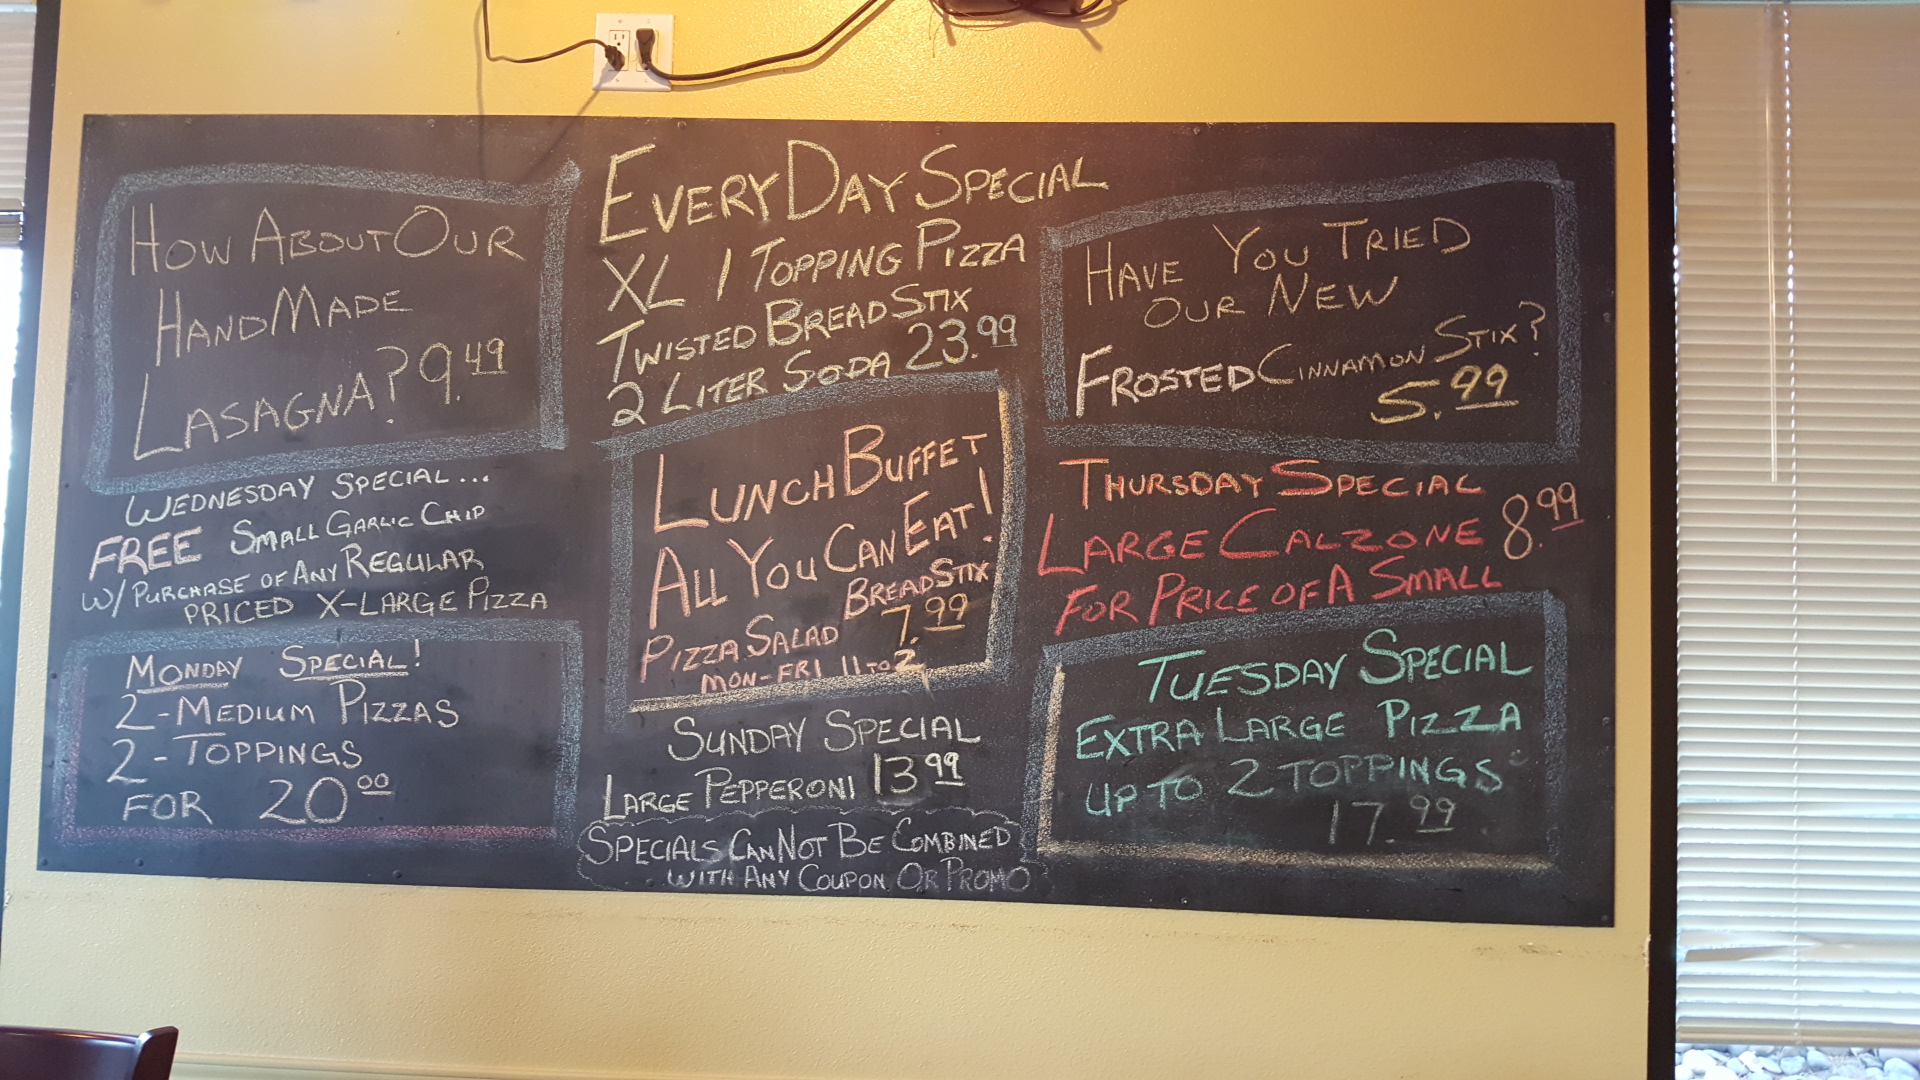 How About Our
HandMade
Lasagna? 9.49
Wednesday Special...
FREE Small Garlic Chip
w/ Purchase of Any Regular
Priced X-Large Pizza
Monday Special!
2-Medium Pizzas
2-Toppings
For 20.00
EveryDay Special
XL 1 Topping Pizza
Twisted BreadStix
2 Liter Soda 23.99
Lunch Buffet
All You Can Eat!
Pizza Salad BreadStix
7.99
Mon-Fri 11 to 2
Sunday Special
Large Pepperoni 13.99
Specials CanNot Be Combined
With Any Coupon Or Promo
Have You Tried
Our New
Frosted Cinnamon Stix?
5.99
Thursday Special
Large Calzone 8.99
For Price of A Small
Tuesday Special
Extra Large Pizza
Up To 2 Toppings
17.99